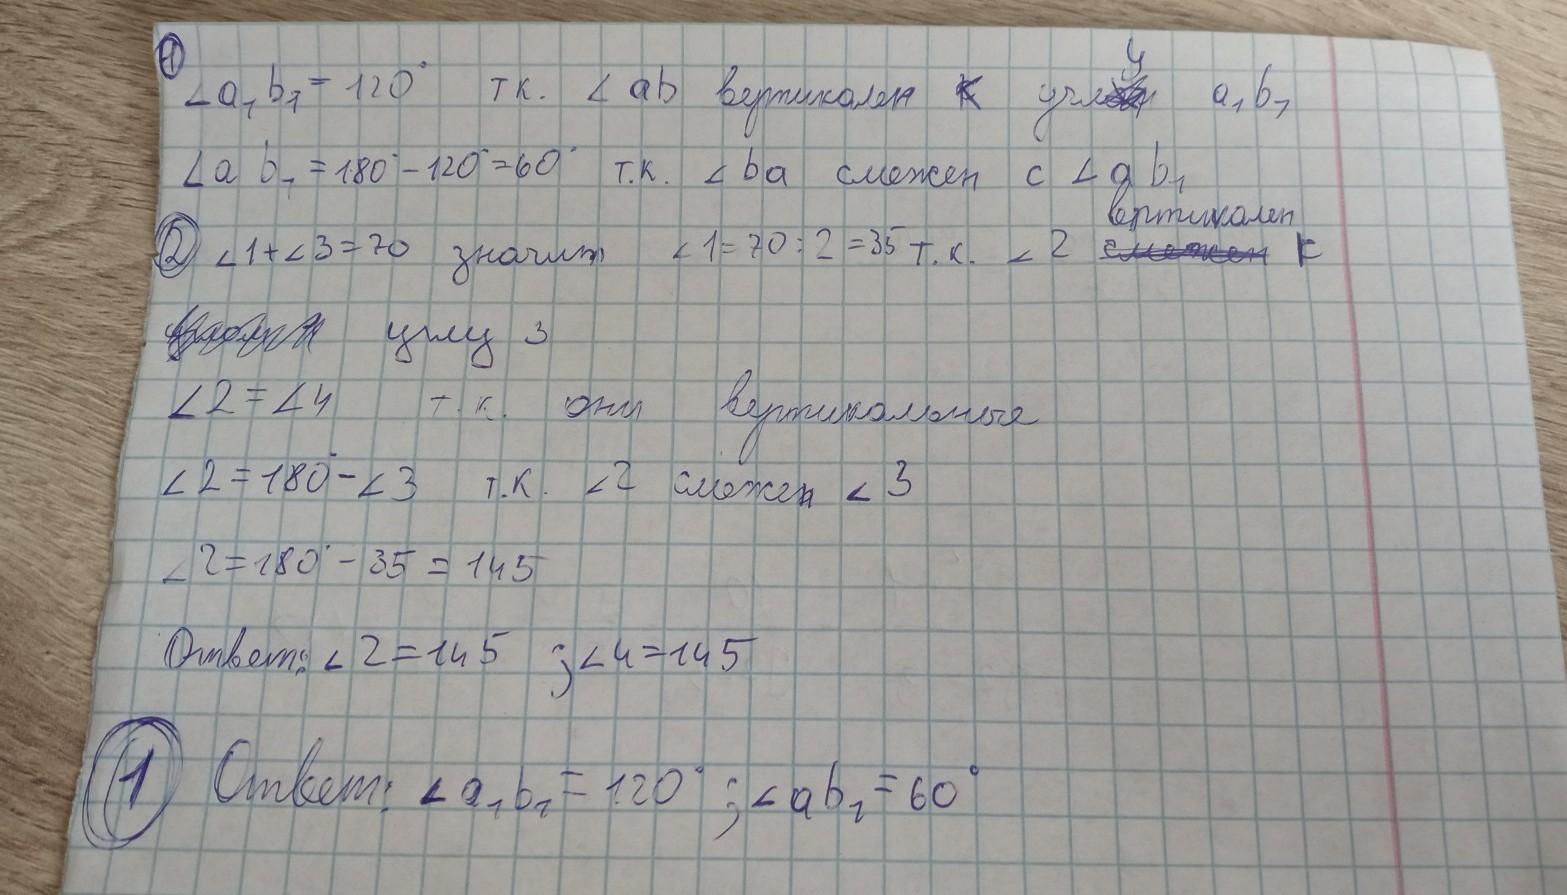 1
∠a₁b₁ = 120° т к. ∠ab вертикален к углу a₁b₁
∠a b₁ = 180° - 120° = 60° т.к. ∠ba смежен с ∠ab₁
2 ∠1+∠3=70 значит ∠1=70:2=35 т.к. ∠2 вертикален к
углу 3
∠2=∠4 т.к. они вертикальные
∠2=180°-∠3 т.к. ∠2 смежен ∠3
∠2=180°-35=145
Ответ: ∠2=145 ; ∠4=145
1 Ответ: ∠a₁b₁=120° ; ∠ab₁=60°